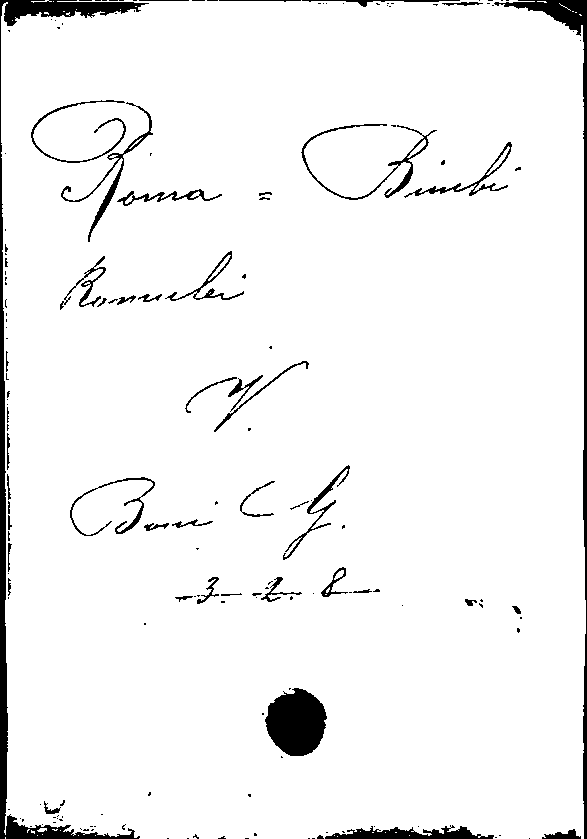 Roma = Bimbi
Romulei
V.
Boni G.
3. 2. 8